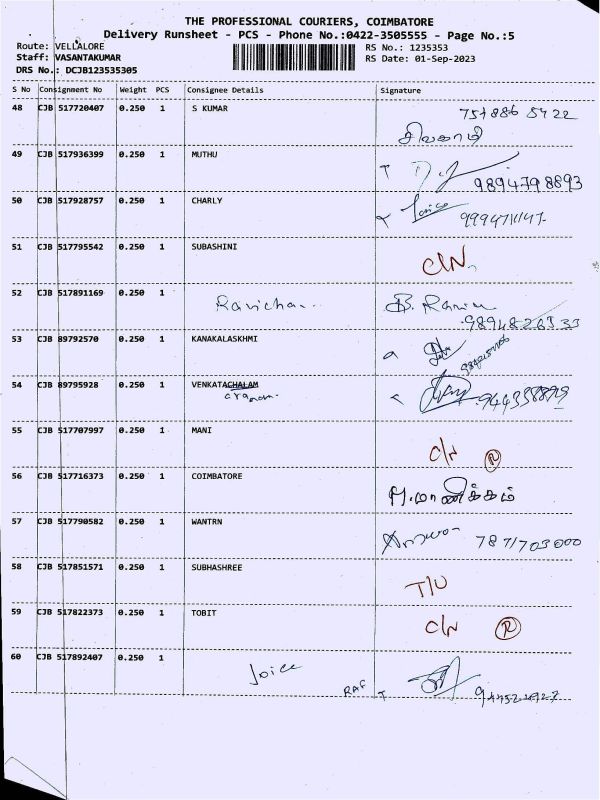 THE PROFESSIONAL COURIERS, COIMBATORE
Delivery Runsheet - PCS - Phone No.:0422-3505555 - Page No.:5
Route: VELLALORE
RS No.: 1235353
Staff: VASANTAKUMAR
RS Date: 01-Sep-2023
DRS No.: DCJB123535305
S No Consignment No Weight PCS Consignee Details Signature
48 CJB 517720407 0.250 1 S KUMAR
சிவகாமி
49 CJB 517936399 0.250 1 MUTHU
9894798893
50 CJB 517928757 0.250 1 CHARLY
51 CJB 517795542 0.250 1 SUBASHINI
C/N
52 CJB 517891169 0.250 1
B.
53 CJB 89792570 0.250 1 KANAKALASKHMI
54 CJB 89795928 0.250 1 VENKATACHALAM
55 CJB 517707997 0.250 1 MANI
C/N R
56 CJB 517716373 0.250 1 COIMBATORE
57 CJB 517790582 0.250 1 WANTRN
7871703000
58 CJB 517851571 0.250 1 SUBHASHREE
T/U
59 CJB 517822373 0.250 1 TOBIT
C/N R
60 CJB 517892407 0.250 1
Joice